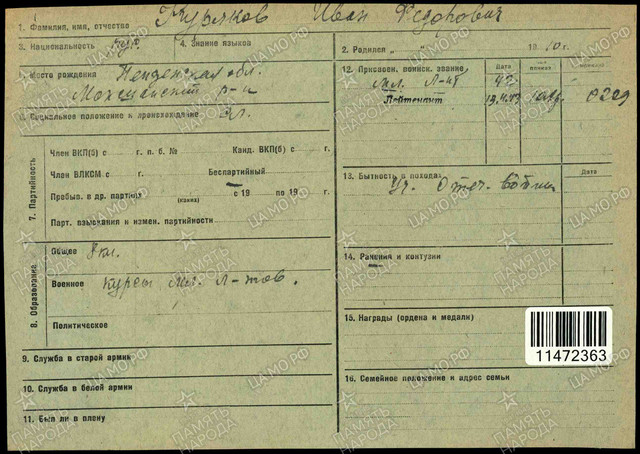 1. Фамилия, имя, отчество Куряков Иван Федорович
3. Национальность рус. 4. Знание языков
2. Родился „ “ 1910 г.
5. Место рождения Пензенская обл.
Мокшанский р-н
6. Социальное положение и происхождение сл.
7. Партийность
Член ВКП(б) с г. п. б. № Канд. ВКП(б) с г.
Член ВЛКСМ с г. Беспартийный
Пребыв. в др. партиях (каких) с 19 по 19 г.
Парт. взыскания и измен. партийности
8. Образование
Общее 8 кл.
Военное курсы мл. л-тов.
Политическое
9. Служба в старой армии
10. Служба в белой армии
11. Был ли в плену
12. Присвоен. воинск. звание Дата
Мл. Л-нт 42
Лейтенант 0229
13. Бытность в походах Дата
Уч. Отеч. войны
14. Ранения и контузии
15. Награды (ордена и медали)
11472363
16. Семейное положение и адрес семьи
ПАМЯТЬ НАРОДА
ЦАМО.РФ